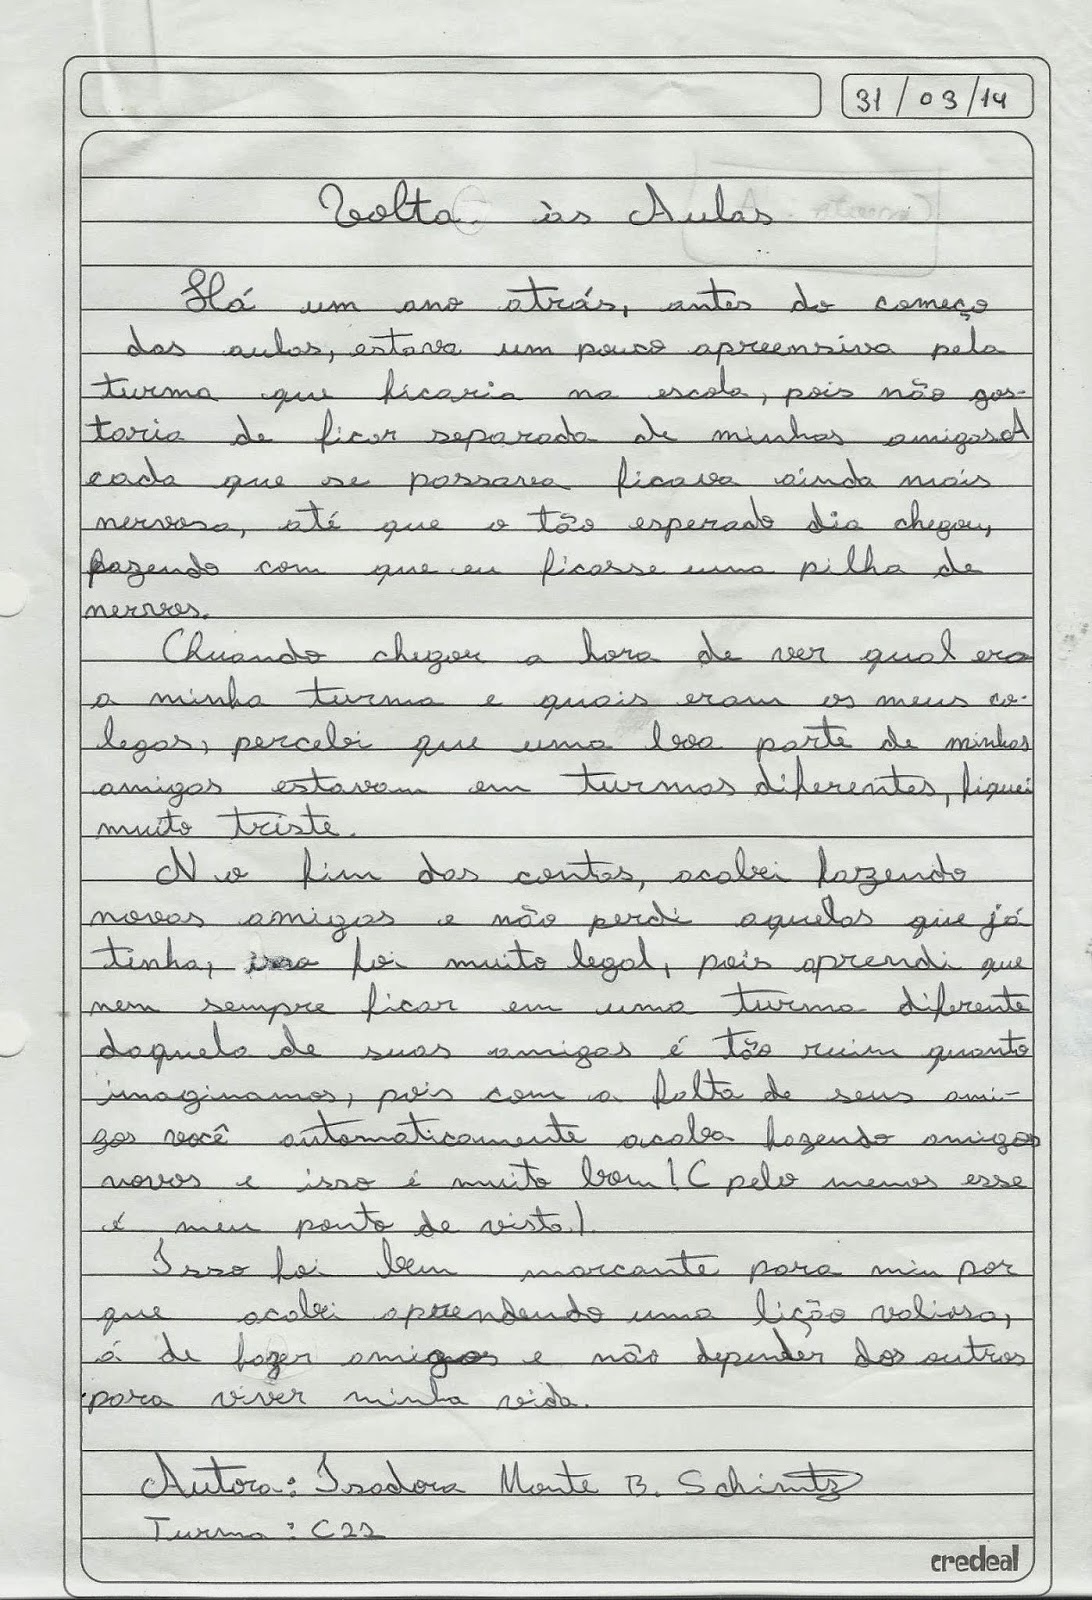 31/03/14
Volta às Aulas
Há um ano atrás, antes do começo
das aulas, estava um pouco apreensiva pela
turma que ficaria na escola, pois não gos-
taria de ficar separada de minhas amigas. A
cada que se passava ficava ainda mais
nervosa, até que o tão esperado dia chegou,
fazendo com que eu ficasse uma pilha de
nervos.
Quando chegou a hora de ver qual era
a minha turma e quais eram os meus co-
legas, percebi que uma boa parte de minhas
amigas estavam em turmas diferentes, fiquei
muito triste.
No fim das contas, acabei fazendo
novas amigas e não perdi aquelas que já
tinha, isso foi muito legal, pois aprendi que
nem sempre ficar em uma turma diferente
daquela de suas amigas é tão ruim quanto
imaginamos, pois com a falta de seus ami-
gos você automaticamente acaba fazendo amigos
novos e isso é muito bom! (pelo menos esse
é meu ponto de vista).
Isso foi bem marcante para mim por
que acabei aprendendo uma lição valiosa,
á de fazer amigos e não depender dos outros
para viver minha vida.
Autora: Isadora Monte B. Schimtz
Turma: C22
credeal